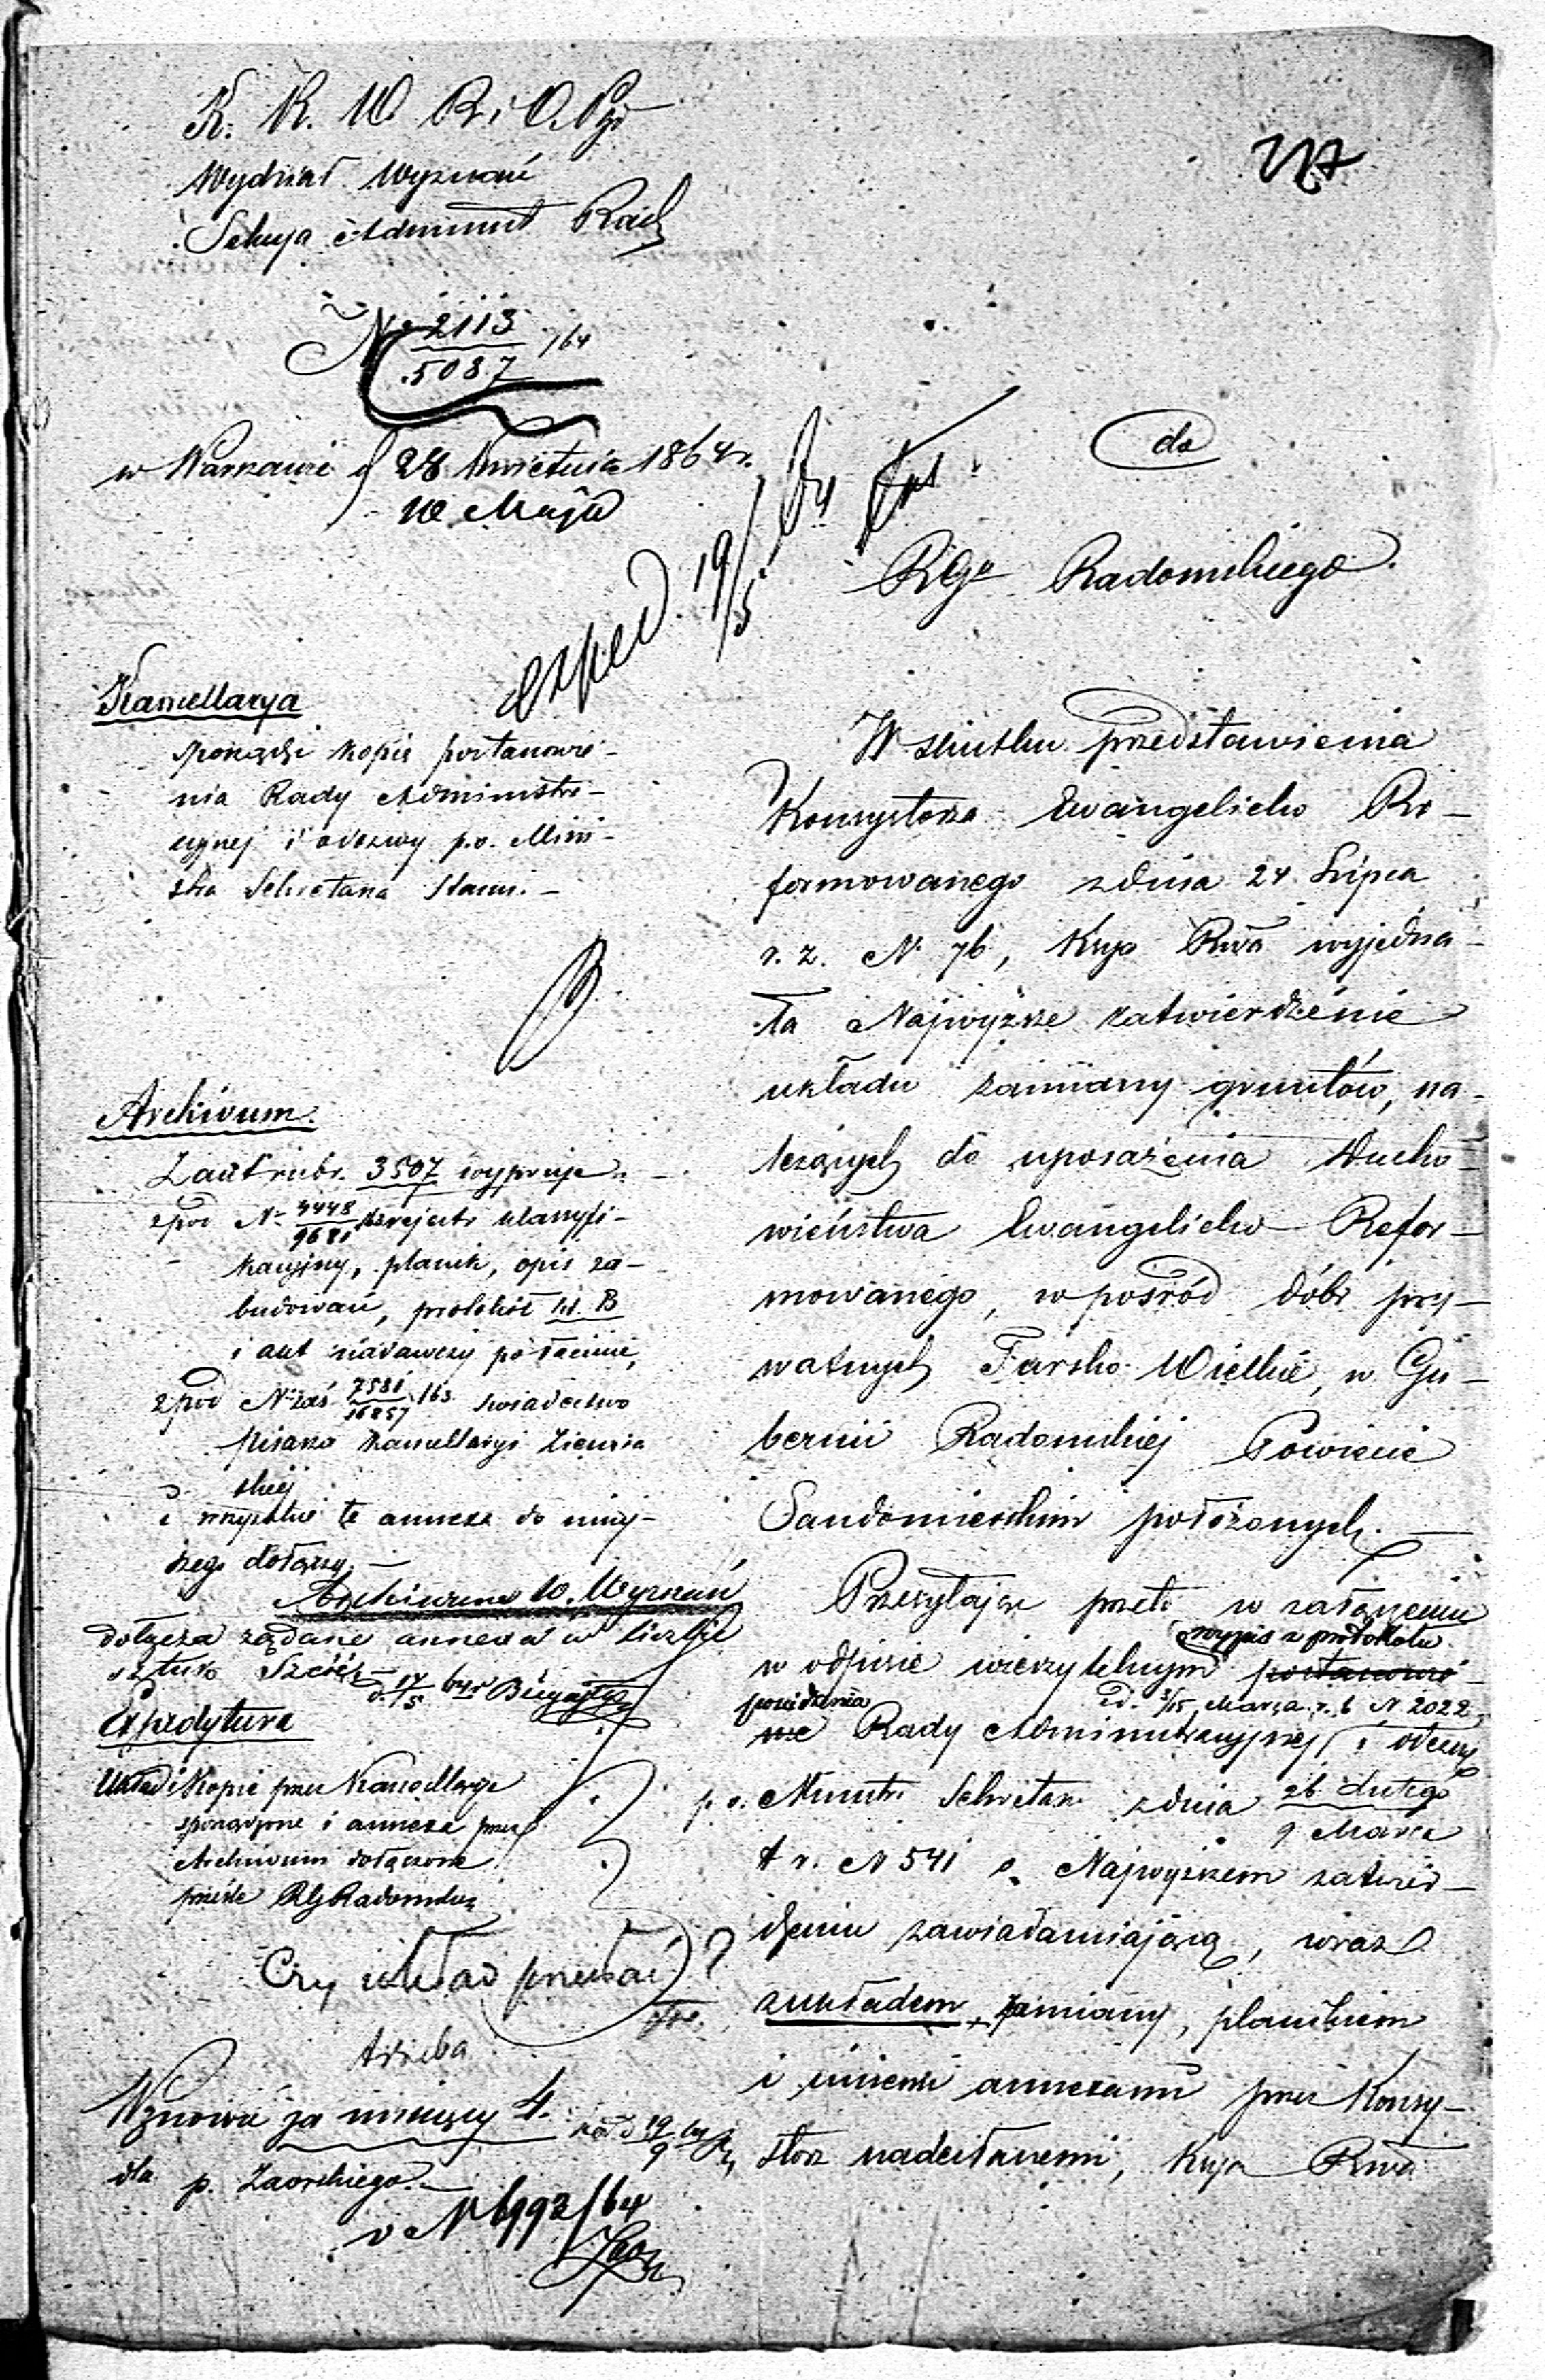 K. R. W. R. i O. P.
Wydział Wyznań
Sekcya Administ
N 2113 / 5087 /64
w Warszawie d 28 Kwietnia 1864 r.
10 Maja
exped. 19/5 64
do
RGo Radomskiego.
Kancellarya
sporządzi kopie postanowie-
nia Rady Administra-
cyjnej i odezwy p.o. Mini-
stra Sekretarza Stanu. –
Archivum.
3507 wypisze
z pod N. 4448 / 9681 rejestr klassyfi-
kacyjny, planik, opis za-
budowań, protokół lit. B
i akt nadawczy po łacinie,
z pod N. zaś 7581 / 16857 /63 świadectwo
Pisarza Kancellaryi Ziemia
skiej
i wszystkie te annexa do niniej-
szego dołączy. –
Archiwum W. Wyznań
dołącza żądane annexa w liczbie
sztuk Sześć –
d. 17/5 64 r
Expedytura
Układ i Kopie przez Kancellarye
sporządzone i annexa przez
Archivum dołączone
prześle RG Radomskie
Czy układ przesłać?
trzeba
Wznowić za miesięcy 4.
dla p. Zaorskiego. –
v N 6993/64
W skutku przedstawienia
Konsystorza Ewangelicko Re-
formowanego z dnia 24 Lipca
r. z. N. 76, Kssya Rwa wyjedna-
ła Najwyższe zatwierdzenie
układu zamiany gruntów, na-
leżących do uposażenia Ducho-
wieństwa Ewangelicko Refor-
mowanego, w pośród dóbr pry-
watnych Tursko Wielkie, w Gu-
bernii Radomskiej Powiecie
Sandomierskim położonych. –
Przesyłając przeto w załączeniu
wypis z protokołu
w odpisie wierzytelnym postanowie-
posiedzenia d. 3/15 Marca r. b N 2022
nie Rady Administracyjnej i odezwy
p. o. Ministra Sekretarza z dnia 26 Lutego
9 Marca
t r. N 541 o Najwyższem zatwier-
dzeniu zawiadamiającą, wraz
z układem zamiany, planikiem
i innemi annexami przez Konsy-
storz nadesłanemi, Kssya Rwa